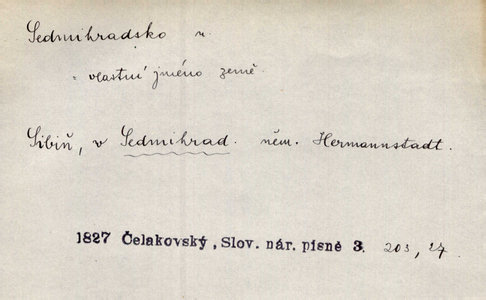 Sedmihradsko n.
vlastní jméno země
Sibiň, v Sedmihrad. něm. Hermannstadt.
1827 Čelakovský, Slov. nár. písně 3. 203, 27